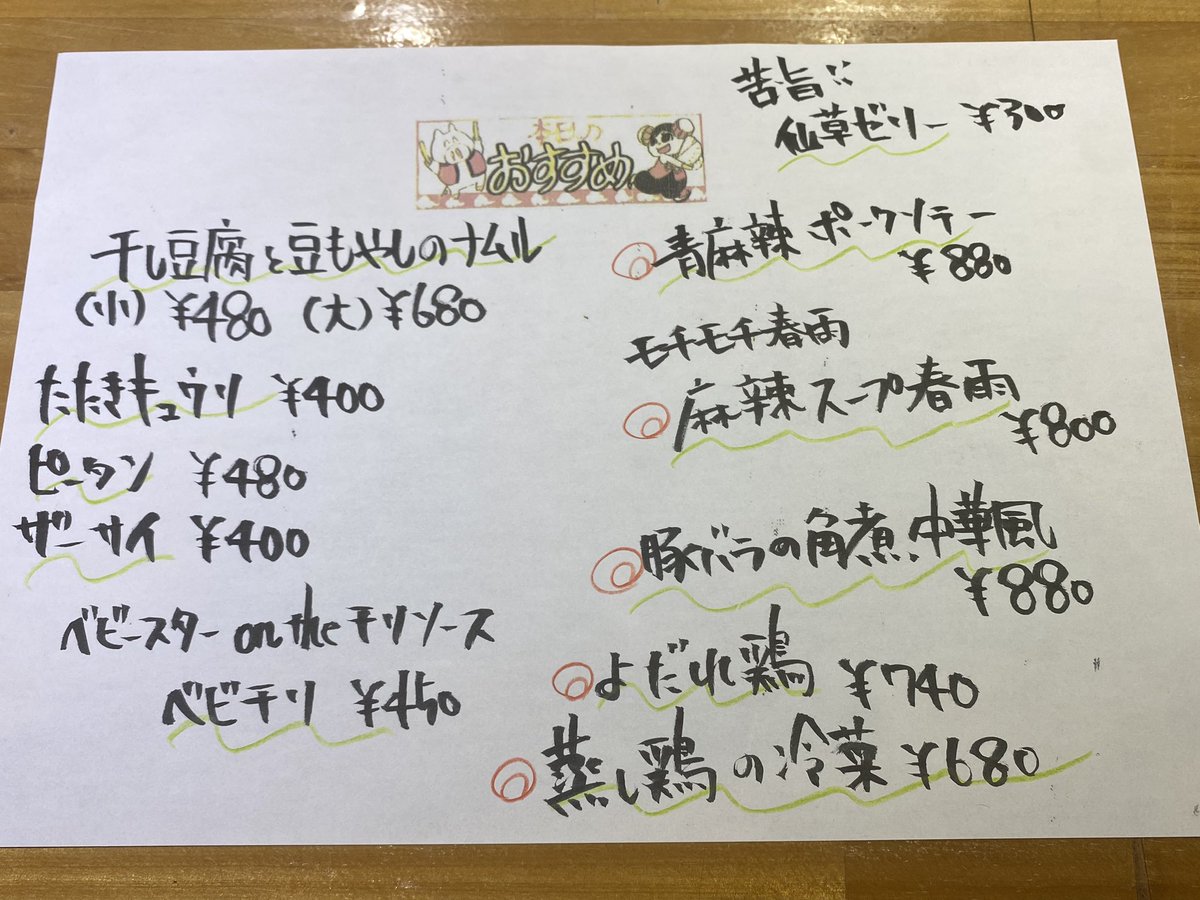 本日の
おすすめ
干し豆腐と豆もやしのナムル
(小) ¥480 (大) ¥680
たたきキュウリ ¥400
ピータン ¥480
ザーサイ ¥400
ベビースター on the チリソース
ベビチリ ¥450
苦旨!!
仙草ゼリー ¥300
青麻辣 ポークソテー
¥880
モチモチ春雨
麻辣スープ春雨
¥800
豚バラの角煮 中華風
¥880
よだれ鶏 ¥740
蒸し鶏の冷菜 ¥680